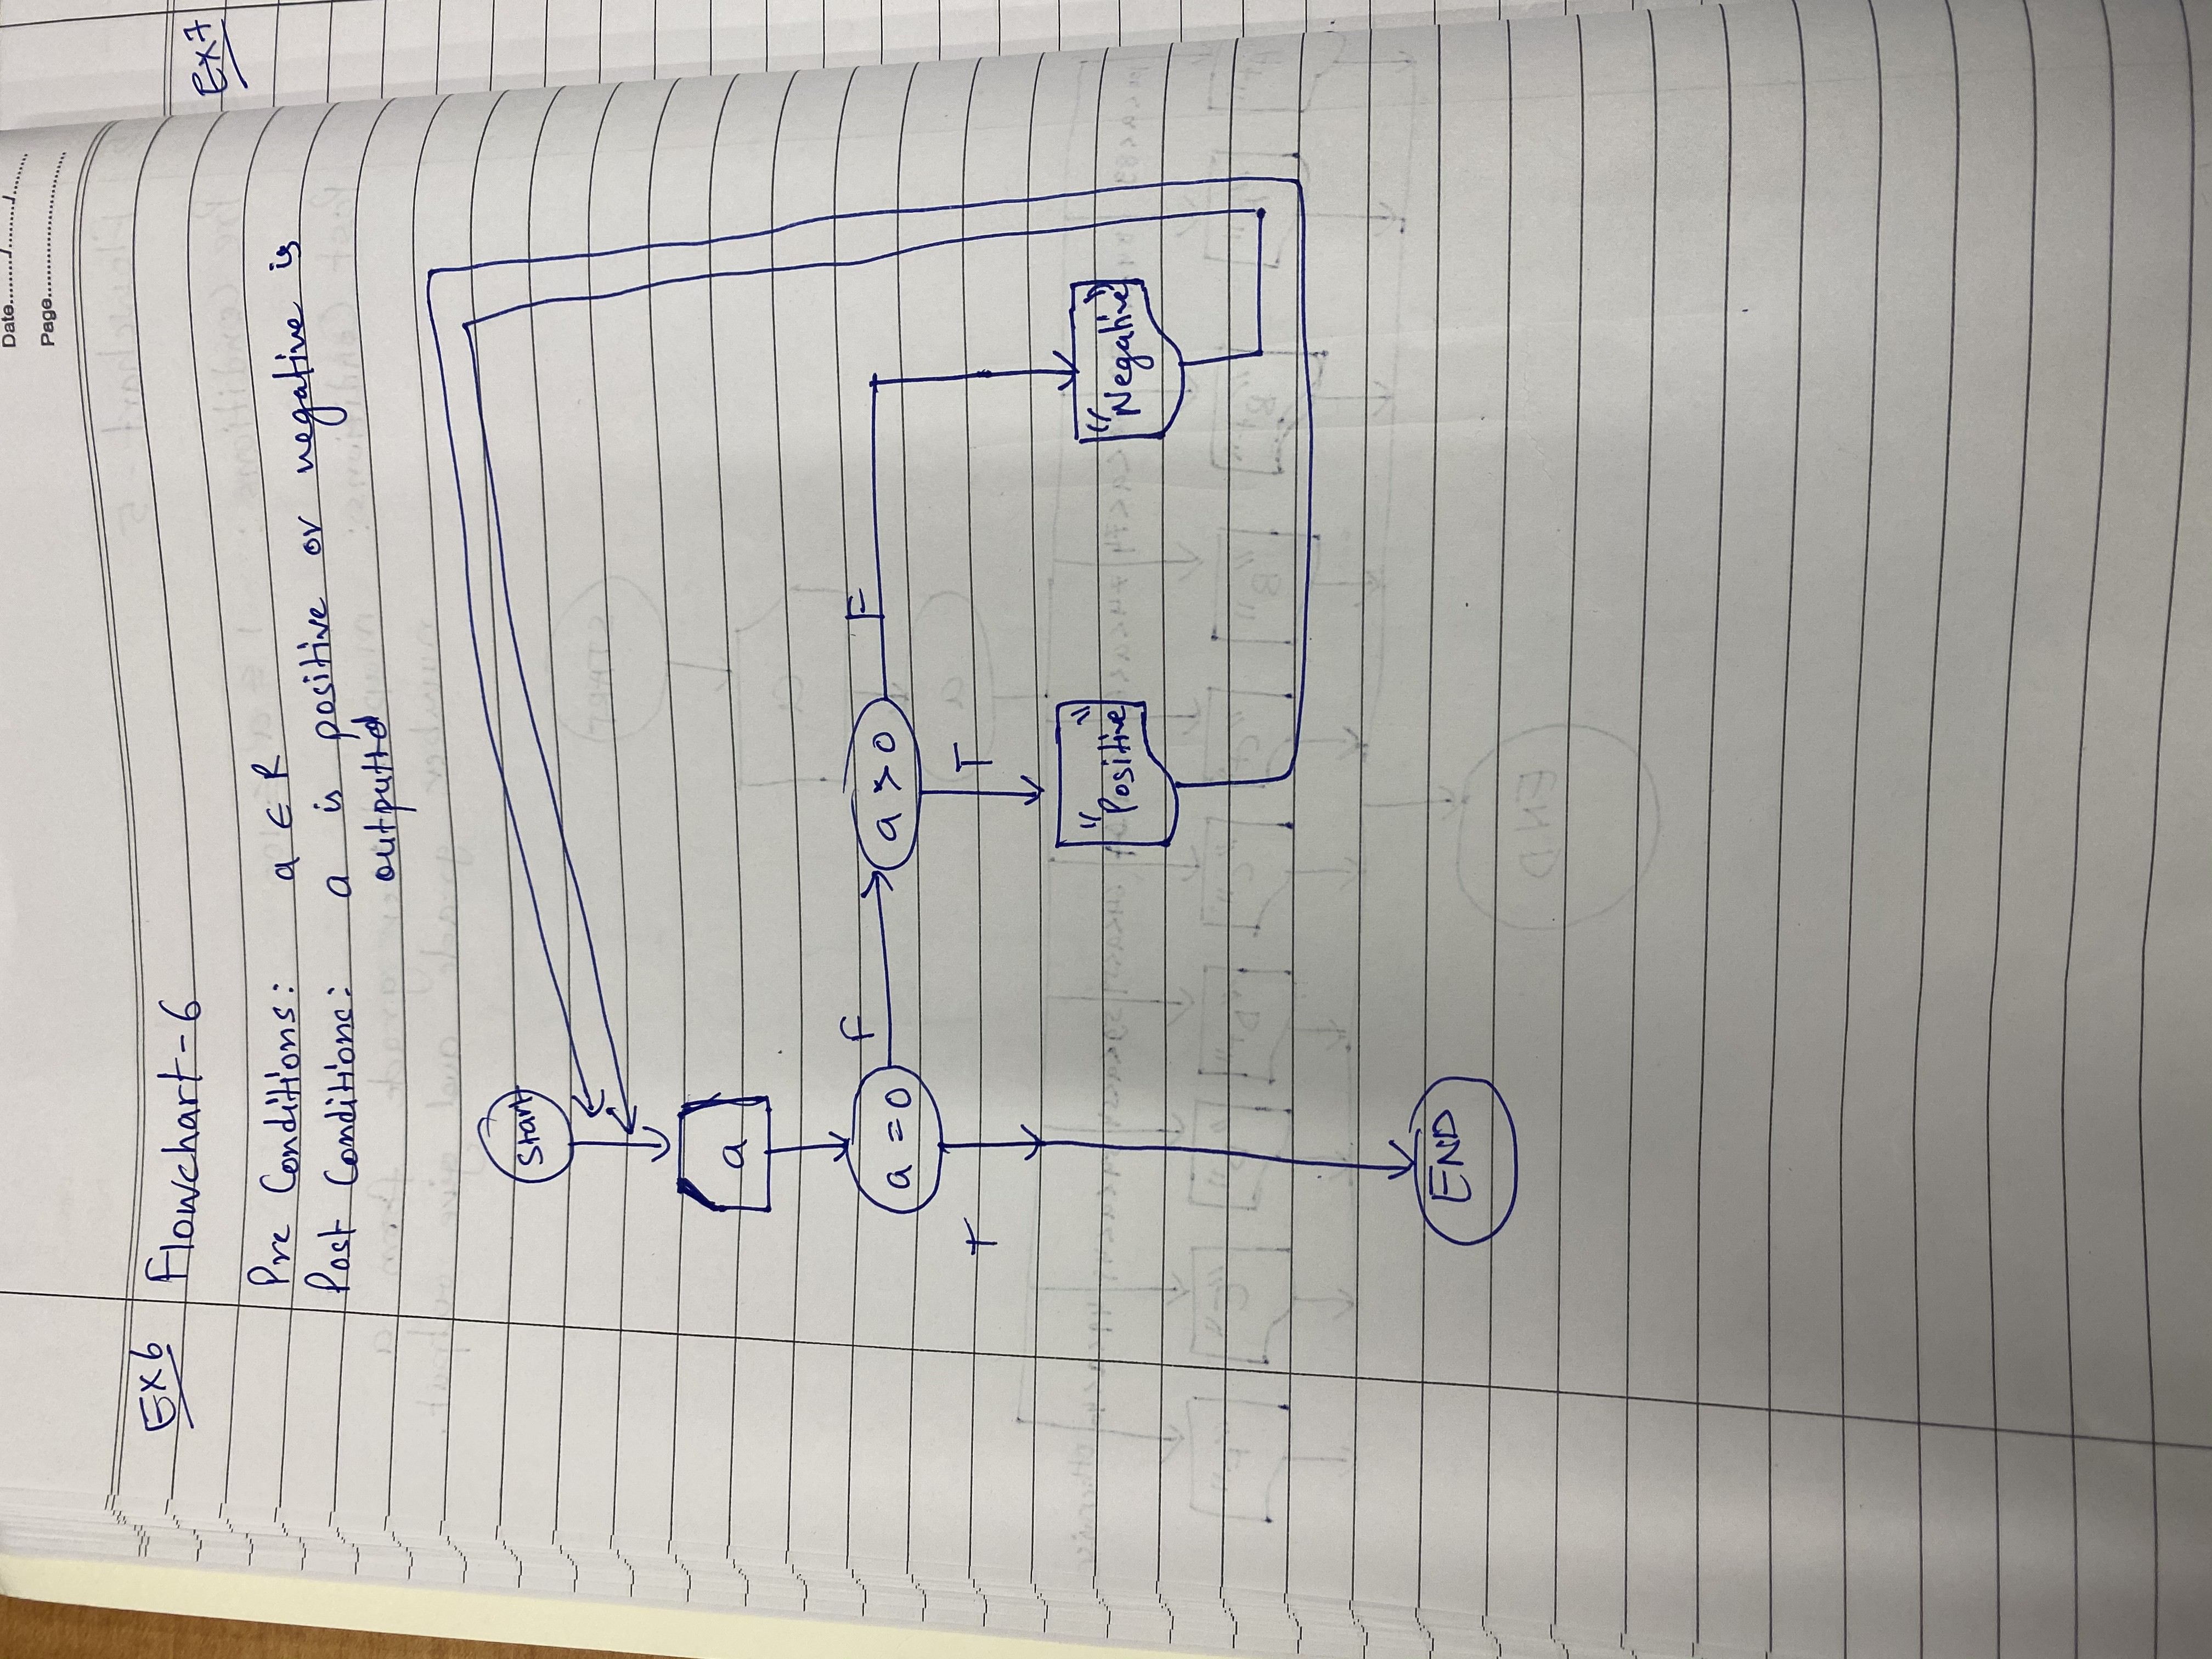 Date......../........./........
Page................................
Ex6
Flowchart-6
Ex7
Pre Conditions: a ∈ R
Post Conditions: a is positive or negative is
outputted
Start
a
a = 0
F
a > 0
F
T
T
"Positive"
"Negative"
END